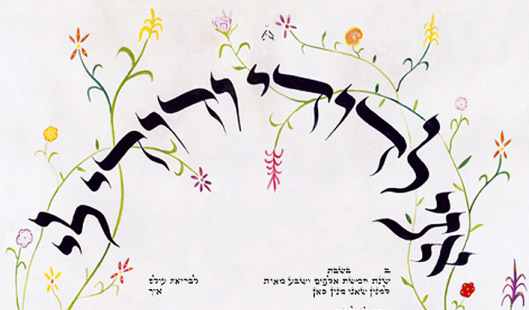 אני לדודי ודודי לי
ב בשבת
שנת חמשת אלפים ושבע מאות לבריאת עולם
למנין שאנו מנין כאן איך